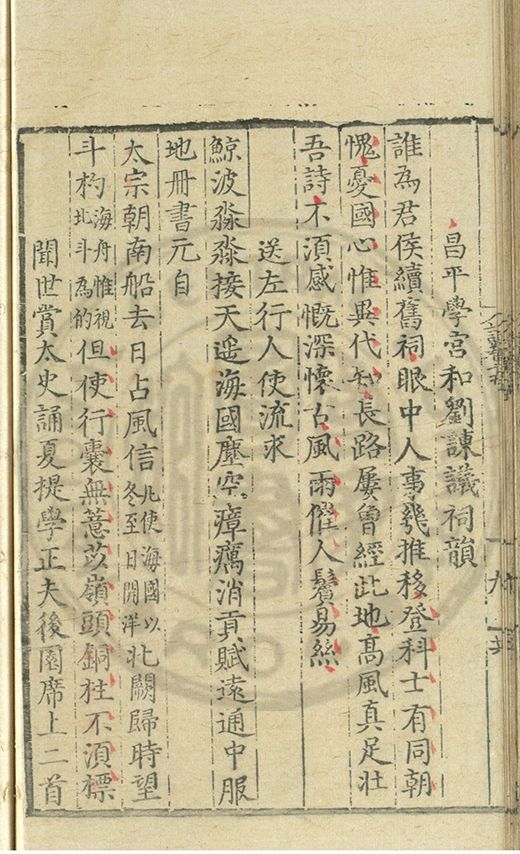 昌平學宮和劉諫議祠韻
誰為君侯續舊祠眼中人事幾推移登科士有同朝
愧憂國心惟異代知長路屢曾經此地高風真足壯
吾詩不須感慨深懷古風雨催人鬢易絲
送左行人使流求
鯨波淼淼接天遥海國塵空瘴癘消貢賦遠通中服
地冊書元自
太宗朝南船去日占風信凡使海國以冬至日開洋北闕歸時望
斗杓海舟惟視北斗為的但使行囊無薏苡嶺頭銅柱不須標
聞世賞太史誦夏提學正夫後園席上二首